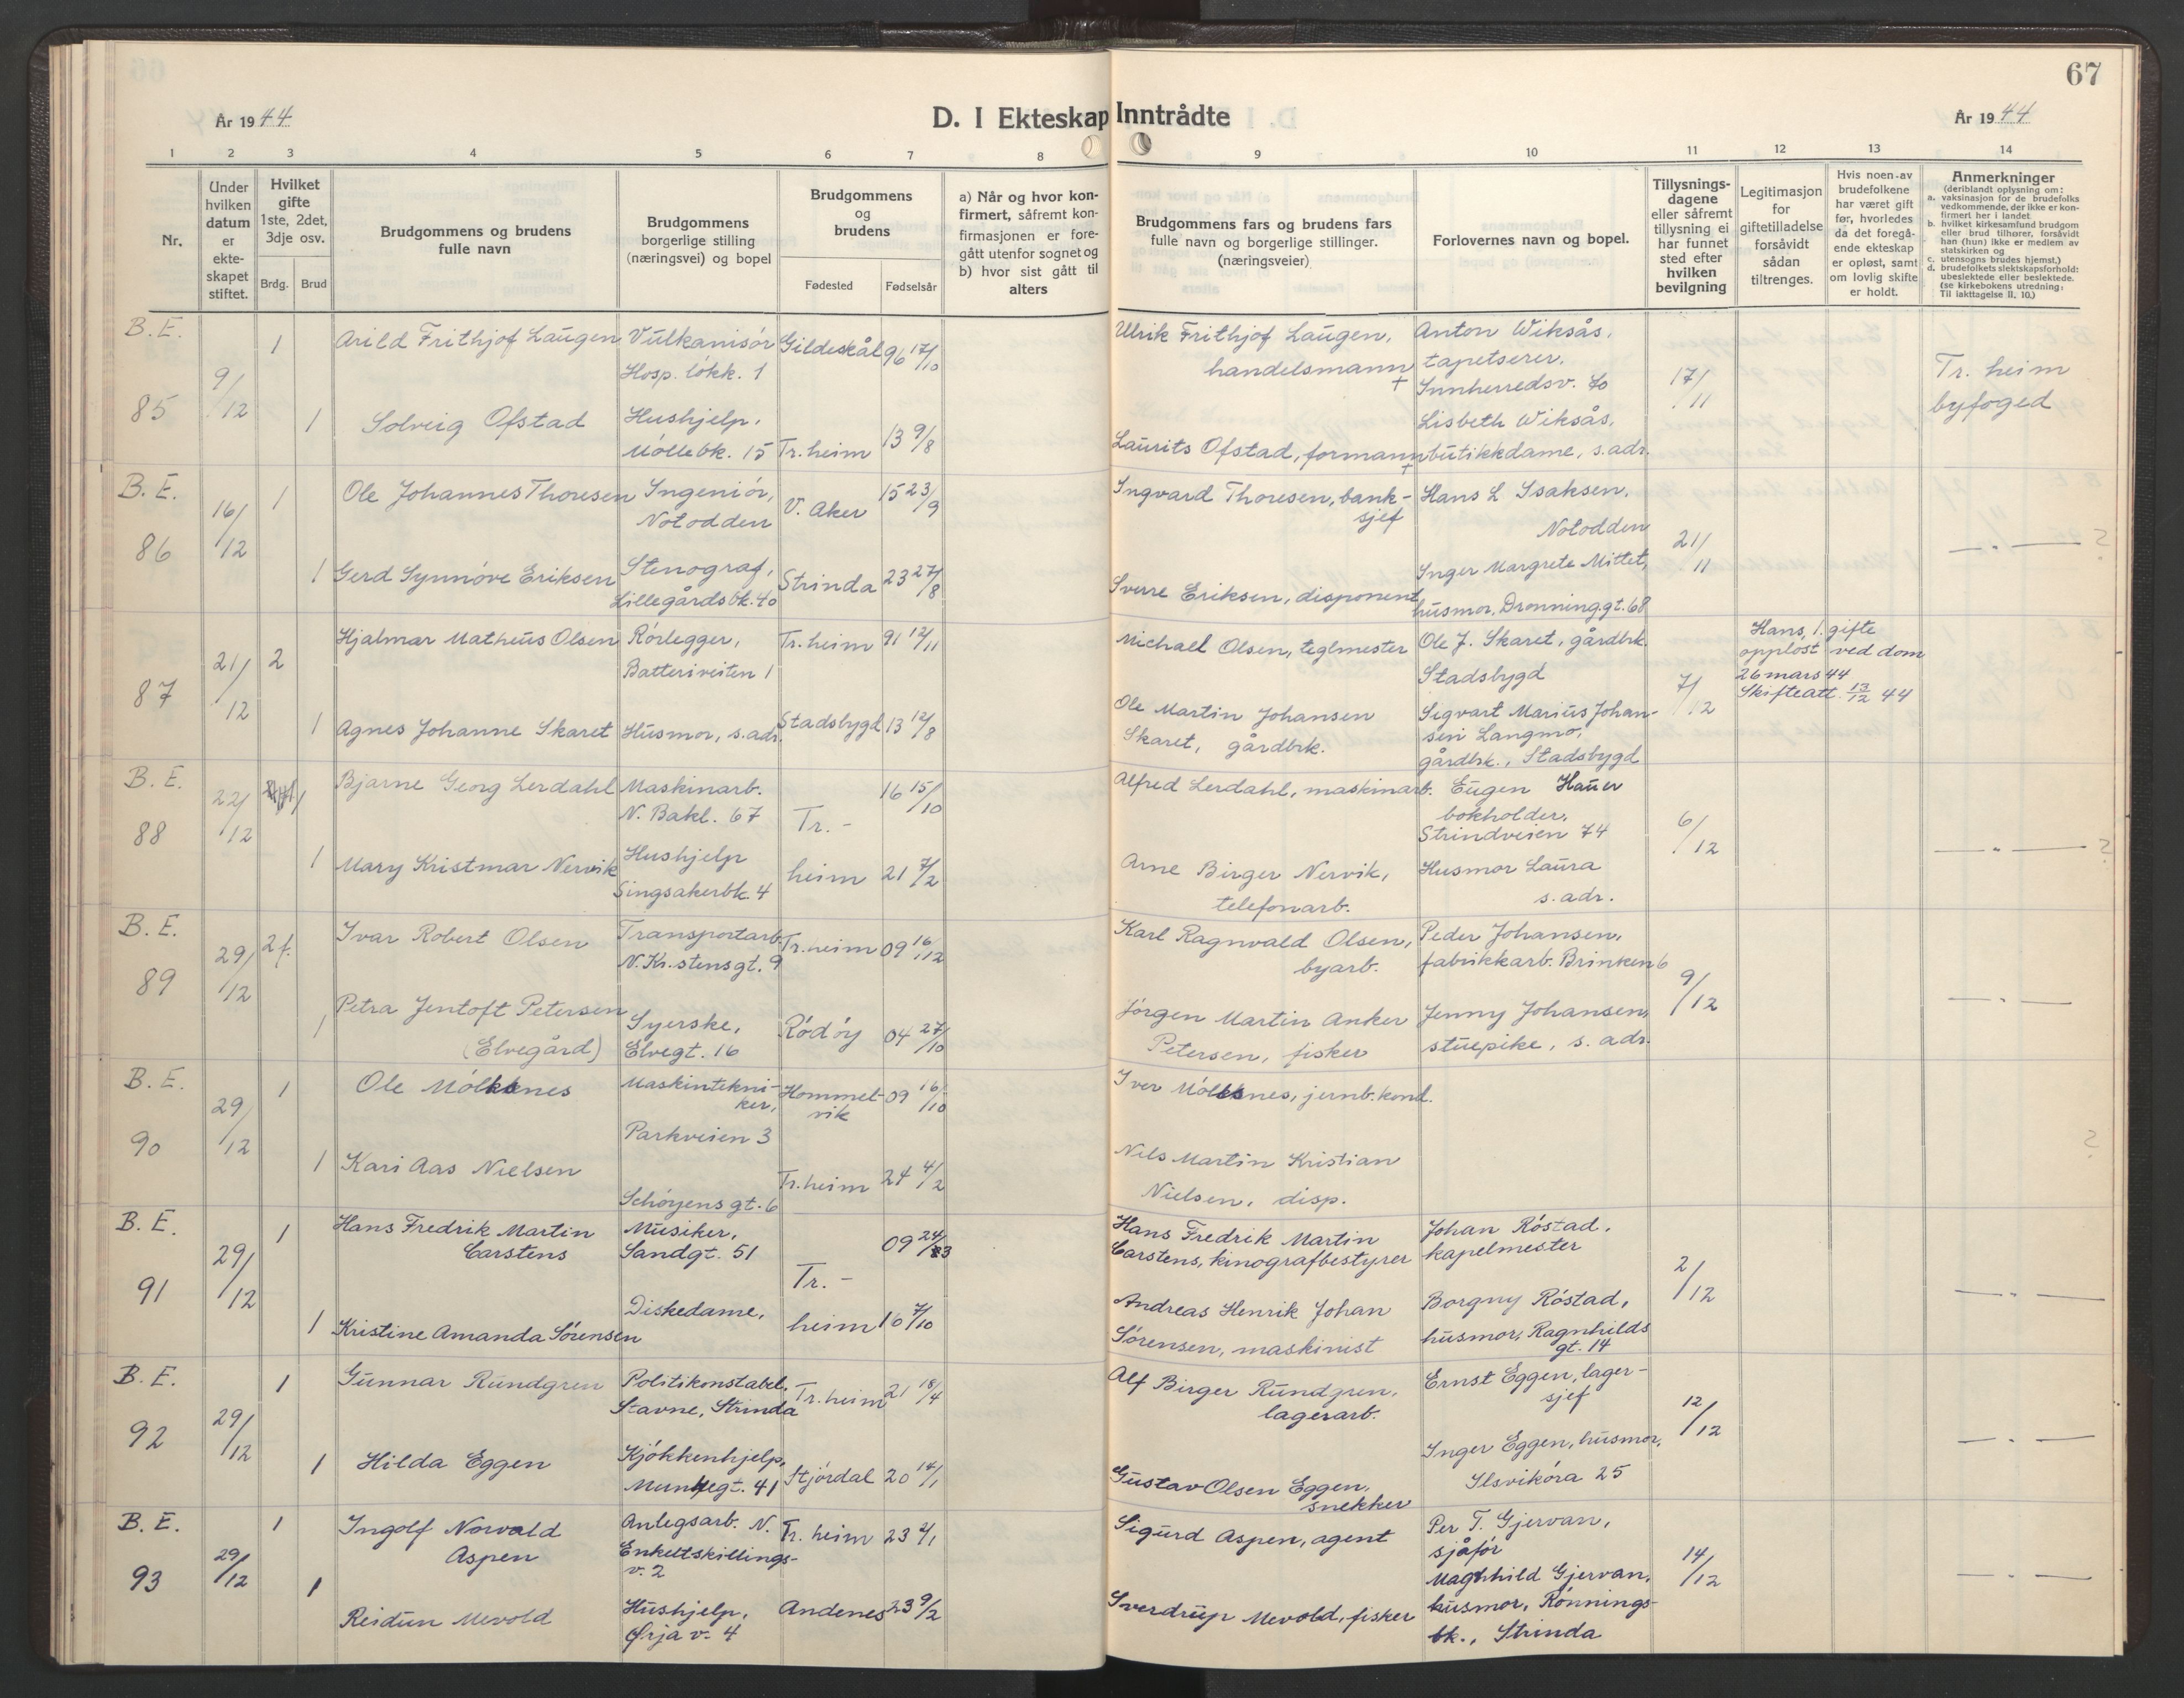 67
År 1944
D. I Ekteskap Inntrådte
År 1944
1 2 3 4 5 6 7 8 9 10 11 12 13 14
Nr.
Under hvilken datum er ekte- skapet stiftet.
Hvilket gifte 1ste, 2det, 3dje osv.
Brdg. Brud
Brudgommens og brudens fulle navn
Brudgommens borgerlige stilling (næringsvei) og bopel
Brudgommens og brudens
Fødested Fødselsår
a) Når og hvor kon- firmert, såfremt kon- firmasjonen er fore- gått utenfor sognet og b) hvor sist gått til alters
Brudgommens fars og brudens fars fulle navn og borgerlige stillinger. (næringsveier)
Forlovernes navn og bopel.
Tillysnings- dagene eller såfremt tillysning ei har funnet sted efter hvilken bevilgning
Legitimasjon for giftetilladelse forsåvidt sådan tiltrenges.
Hvis noen av brudefolkene har været gift før, hvorledes da det foregå- ende ekteskap er opløst, samt om lovlig skifte er holdt.
Anmerkninger
(deriblandt oplysning om:
a. vaksinasjon for de brudefolks vedkommende, der ikke er kon- firmert her i landet
b. hvilket kirkesamfund brudgom eller brud tilhører, forsåvidt han (hun) ikke er medlem av statskirken og
c. utensogns brudes hjemst.)
d. brudefolkets slektskapsforhold: ubeslektede eller beslektede.
(se kirkebokens utredning: Til iakttagelse II. 10.)
B. E. 85 9/12 1 Arild Frithjof Laugen Vulkanisør Hosp. løkk. 1 Gildeskål 96 17/10 Ulrik Frithjof Laugen, handelsmann + Anton Wiksås, tapetserer, Innherredsv. 70 17/11 Tr. heim byfoged
1 Solveig Ofstad Hushjelp, Møllebk. 15 Tr.heim 13 9/8 Laurits Ofstad, formann + Lisbeth Wiksås, butikkdame, s.adr.
B. E. 86 16/12 1 Ole Johannes Thoresen Ingeniør, Notodden V. Aker 15 23/9 Ingvard Thoresen, bank- sjef Hans L Isaksen, Notodden 21/11 — " — ?
1 Gerd Synnøve Eriksen Stenograf, Lillegårdsbk. 40 Strinda 23 27/8 Sverre Eriksen, disponent Inger Margrete Mittet, husmor, Dronning.gt. 68
87 21/12 2 Hjalmar Matheus Olsen Rørlegger, Batteriveiten 1 Tr.heim 91 12/11 Michael Olsen, teglmester Ole J. Skaret, gårdbrk. Stadsbygd 7/12 Hans 1. gifte oppløst ved dom 26 mars 44 Skifteatt. 13/12 44
1 Agnes Johanne Skaret Husmor, s.adr. Stadsbygd 13 12/8 Ole Martin Johansen Skaret, gårdbrk. Sigvart Marius Johan- sen Langmo, gårdbrk., Stadsbygd
B. E. 88 22/12 1 Bjarne Georg Lerdahl Maskinarb. N. Bakl. 67 Tr.- 16 15/10 Alfred Lerdahl, maskinarb. Eugen Hauer bokholder, Strindveien 74 6/12 — " — ?
1 Mary Kristmar Nervik Hushjelp Singsakerbk. 4 heim 21 7/2 Arne Birger Nervik, telefonarb. Husmor Laura s. adr.
B. E. 89 29/12 2f. Ivar Robert Olsen Transportarb. N. Kr.stensgt. 9 Tr.heim 09 16/12 Karl Ragnvald Olsen, byarb. Peder Johansen, fabrikkarb. Brinken 6 9/12 — " —
1 Petra Jentoft Petersen (Elvegård) Syerske, Elvegt. 16 Rødøy 04 27/10 Jørgen Martin Anker Petersen, fisker Jenny Johansen, stuepike, s. adr.
B. E. 90 29/12 1 Ole Møllenes Maskintekni- ker, Parkveien 3 Hommel- vik 09 16/10 Iver Møllenes, jernb.kond. ?
1 Kari Aas Nielsen Schøyens gt. 6 Tr.heim 24 4/2 Nils Martin Kristian Nielsen, disp.
B. E. 91 29/12 1 Hans Fredrik Martin Carstens Musiker, Sandgt. 51 Tr.- 09 24/3 Hans Fredrik Martin Carstens, kinografbestyrer Johan Røstad, kapelmester 2/12 — " —
1 Kristine Amanda Sørensen Diskedame, heim 16 7/10 Andreas Henrik Johan Sørensen, maskinist Borgny Røstad, husmor, Ragnhilds gt. 14
B. E. 92 29/12 1 Gunnar Rundgren Politikonstabel, Stavne, Strinda Tr.heim 21 18/4 Alf Birger Rundgren, lagerarb. Ernst Eggen, lager- sjef 12/12 — " —
1 Hilda Eggen Kjøkkenhjelp, Munkegt. 41 Stjørdal 20 14/1 Gustav Olsen Eggen, snekker Inger Eggen, husmor, Ilsvikøra 25
B. E. 93 29/12 1 Ingolf Norvald Aspen Anlegsarb. N. Enkeltskillings- v. 2 Tr. heim 23 2/1 Sigurd Aspen, agent Per T. Gjervan, sjåfør 14/12 — " —
1 Reidun Mevold Hushjelp, Ørja v. 4 Andenes 23 9/2 Sverdrup Mevold, fisker Magnhild Gjervan, husmor, Rønnings- bk., Strinda